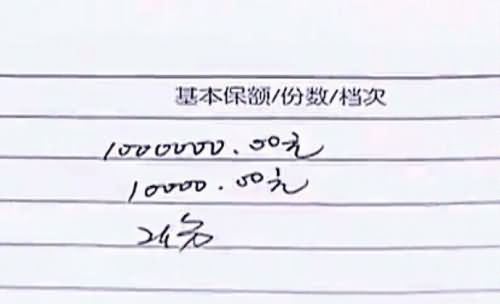 基本保额/份数/档次
1000000.00元
10000.00元
2份